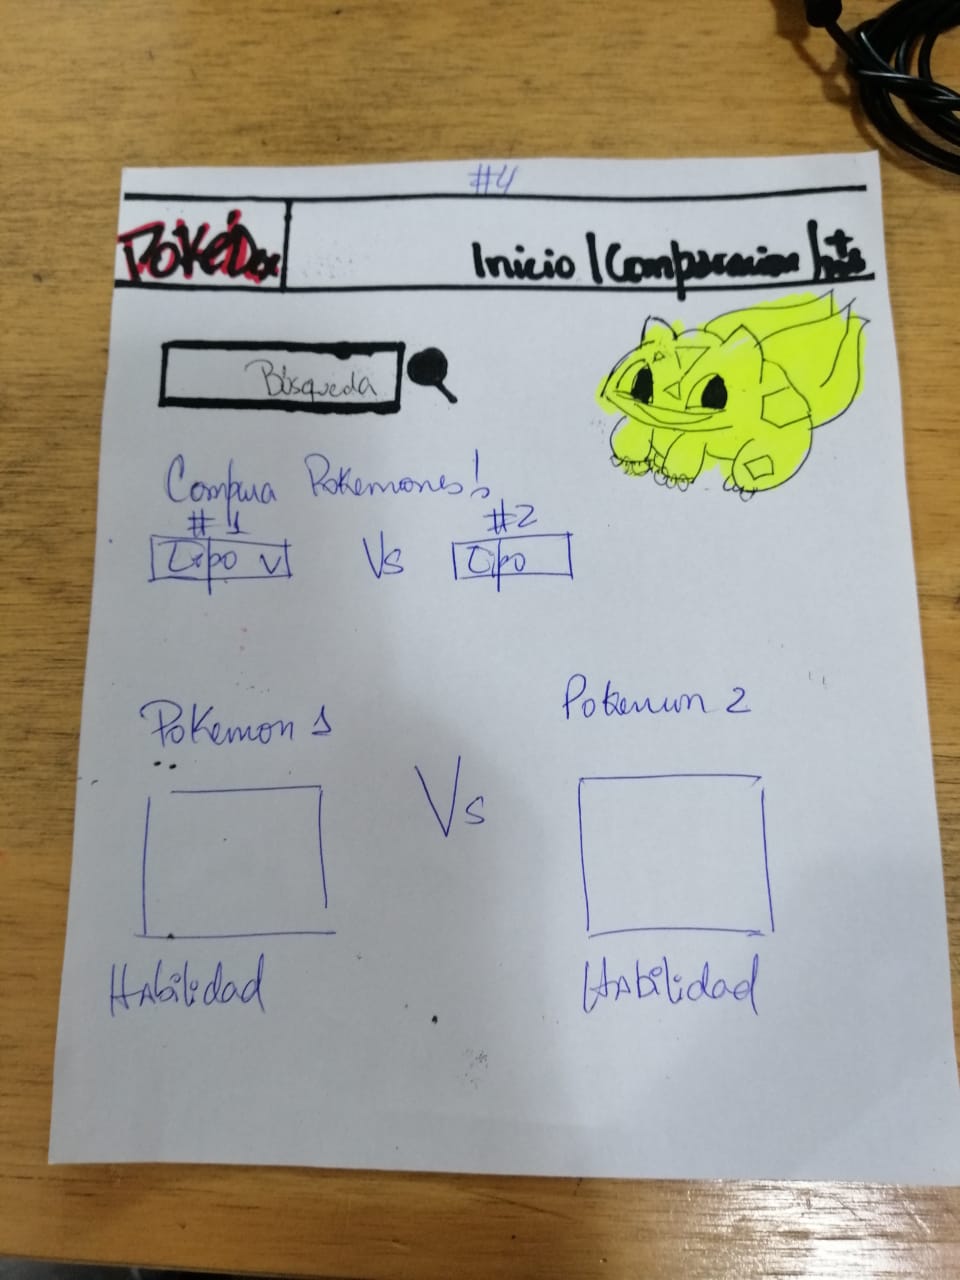 #4
POKEDex
Inicio | Comparacion | + Info
Búsqueda
Compara Pokemones!
#1 #2
Tipo v Vs Tipo
Pokemon 1 Pokemon 2
Vs
Habilidad Habilidad